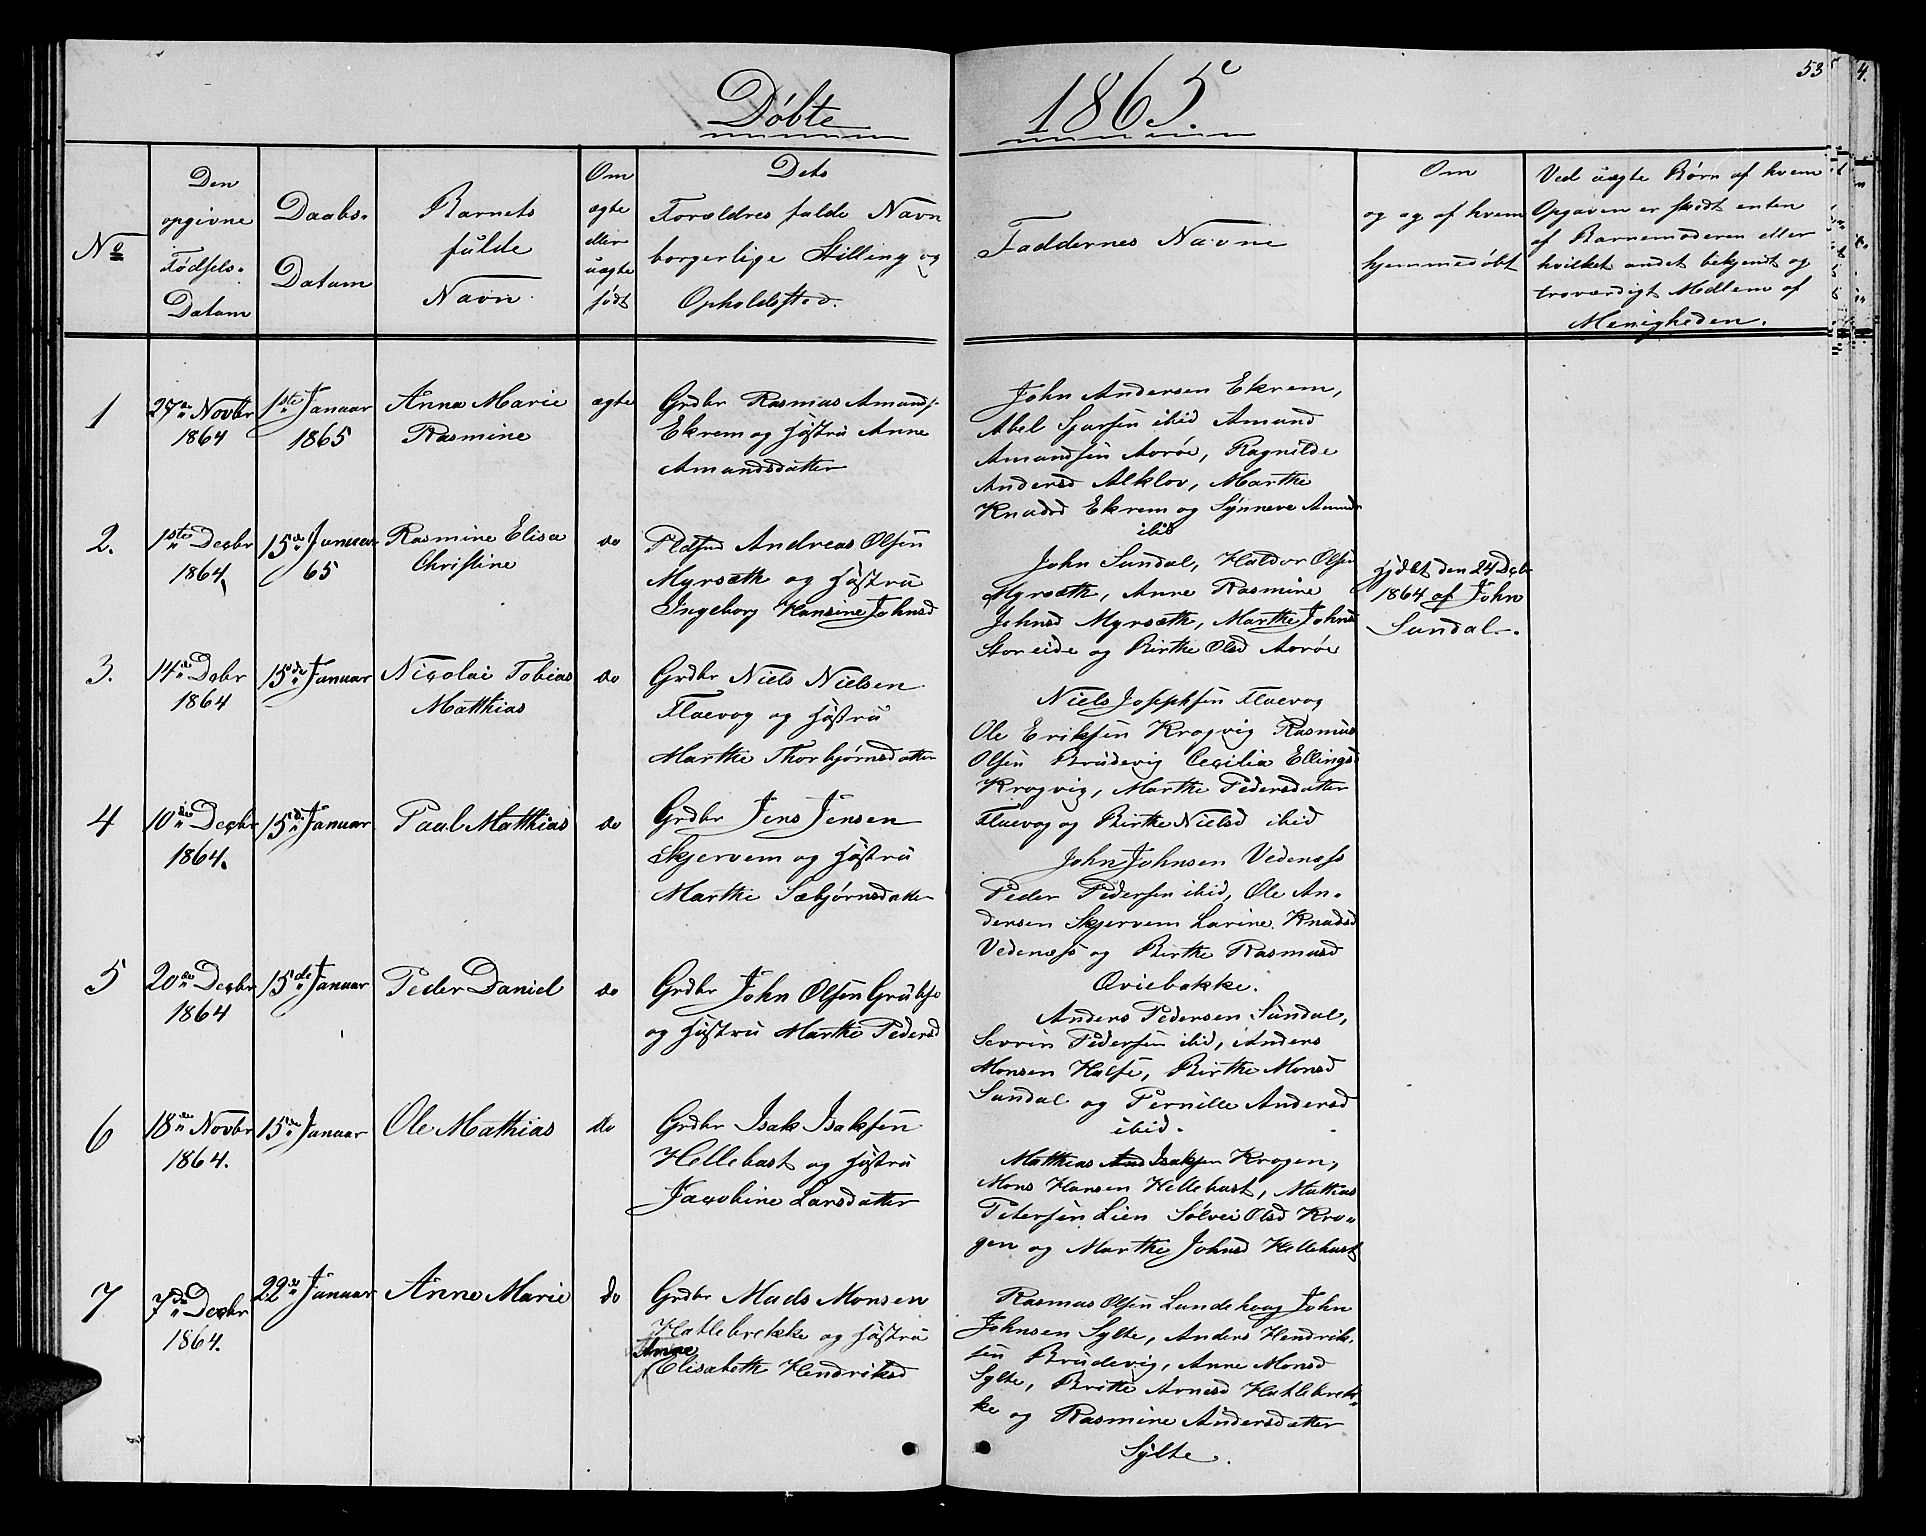 Døbte
1865.
53
4.
No
Den
opgivne
Fødsels-
Datum
Daabs-
Datum
Barnets
fulde
Navn.
Om
ægte
eller
uægte
født
Dets
Forældres fulde Navn
borgerlige Stilling og
Opholdssted.
Faddernes Navne
Om
og og af hvem
hjemmedøbt
Ved uægte Børn af hvem
Opgaven er skedt enten
af Barnemoderen eller
hvilket andet bekjendt og
troværdigt Medlem af
Menigheden.
1
27de Novbr
1864
1ste Januar
1865
Anna Marie
Rasmine
ægte
Grdbr Rasmus Amunds.
Ekrem og Hustru Anne
Amundsdatter
John Andersen Ekrem,
Abel Sjursen ibid Amund
Amundsen Aorøe, Ragnilde
Andersd Alklov, Marthe
Knudsd Ekrem og Synneve Amunds
ibid
2.
1ste Decbr
1864
15de Januar
65
Rasmine Elisa
Christine
do
Pldsmd Andreas Olsen
Myrsæth og Hustru
Ingeborg Hansine Johnsd
John Sundal, Haldor Olsen
Myrsæth, Anne Rasmine
Johnsd Myrsæth, Marthe Johnsd
Storeide og Birthe Olsd Aorøe
Hjdbt den 24 Decbr
1864 af John
Sundal.
3.
14de Decbr
1864
15de Januar
Nicolai Tobias
Matthias
do
Grdbr Niels Nielsen
Flaevog og Hustru
Marthe Thorbjørnsdatter
Niels Josephsen Flaevog
Ole Eriksen Krogvig Rasmus
Olsen Brudevig Cecilia Ellingsd
Krogvig, Marthe Pedersdatter
Flaevog og Birthe Nielsd ibid
4
10de Decbr
1864.
15de Januar
Paul Matthias
do
Grdbr Jens Jensen
Skjervem og Hustru
Marthe Sæbjørnsdatter
John Johnsen Vedenæss
Peder Pedersen ibid, Ole An-
dersen Skjervem Larine Knudsd
Vedenæss og Birthe Rasmusd
Qviebakke.
5
20de Decbr
1864
15de Januar
Peder Daniel
do
Grdbr John Olsen
og Hustru Marthe Pedersd
Anders Pedersen Sundal,
Sevrin Pedersen ibid, Anders
Monsen Halse, Birthe Monsd
Sundal og Pernille Andersd
ibid.
6
18de Novbr
1864.
15de Januar
Ole Mathias
do
Grdbr Isak Isaksen
Hellebust og Hustru
Jacobine Larsdatter
Matthias Isaksen Krogen,
Mons Hansen Hellebust, Mathias
Petersen Lien Sølvei Olsd Kro-
gen og Marthe Johnsd Hellebust
7
7de Decbr
1864.
22de Januar
Anne Marie
do
Grdbr Mads Monsen
Hatlebrekke og Hustru
Anne
Elisabeth Hendriksd
Rasmus Olsen Lundehaug John
Johnsen Sylte, Anders Hendrik-
sen Brudevig, Anne Monsd
Sylte, Britte Arnesd Hatlebrek-
ke og Rasmine Andersdatter
Sylte.